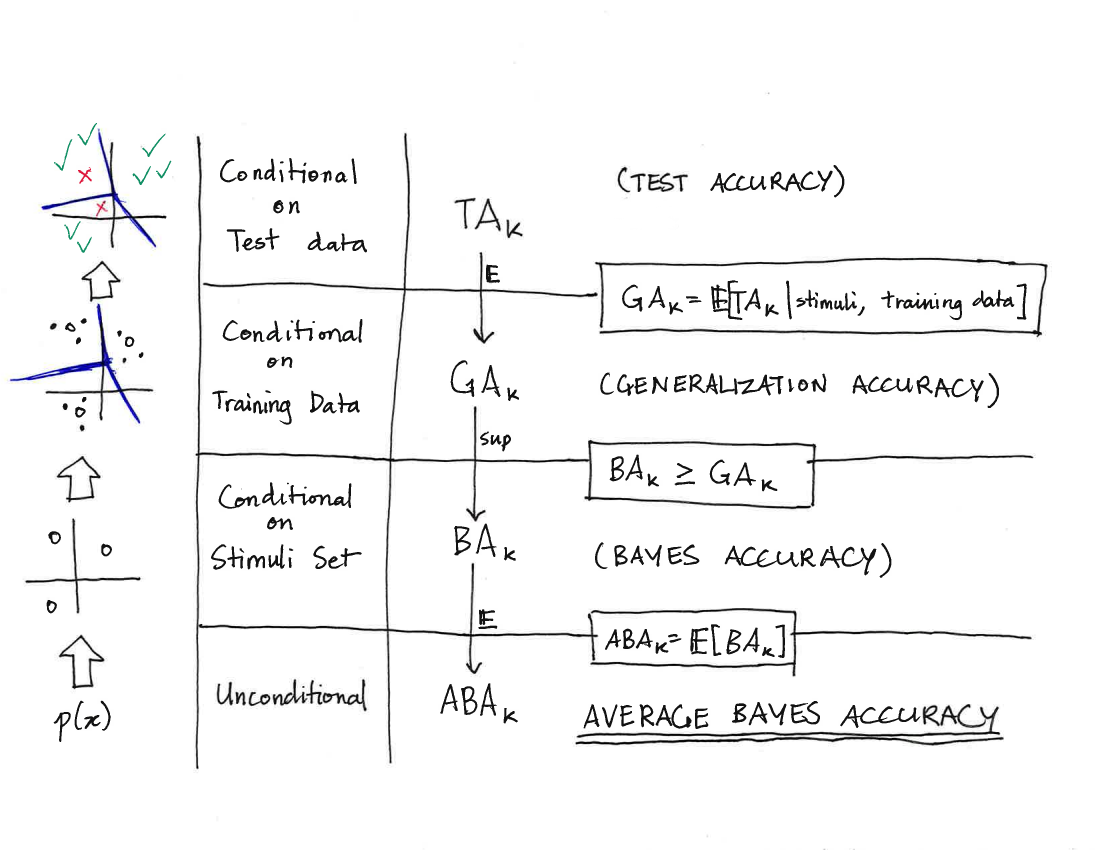 Conditional
on
Test data
TA_K
(TEST ACCURACY)
E
GA_K = E[TA_K | stimuli, training data]
Conditional
on
Training Data
GA_K
(GENERALIZATION ACCURACY)
sup
BA_K ≥ GA_K
Conditional
on
Stimuli Set
BA_K
(BAYES ACCURACY)
E
ABA_K = E[BA_K]
p(x)
Unconditional
ABA_K
AVERAGE BAYES ACCURACY